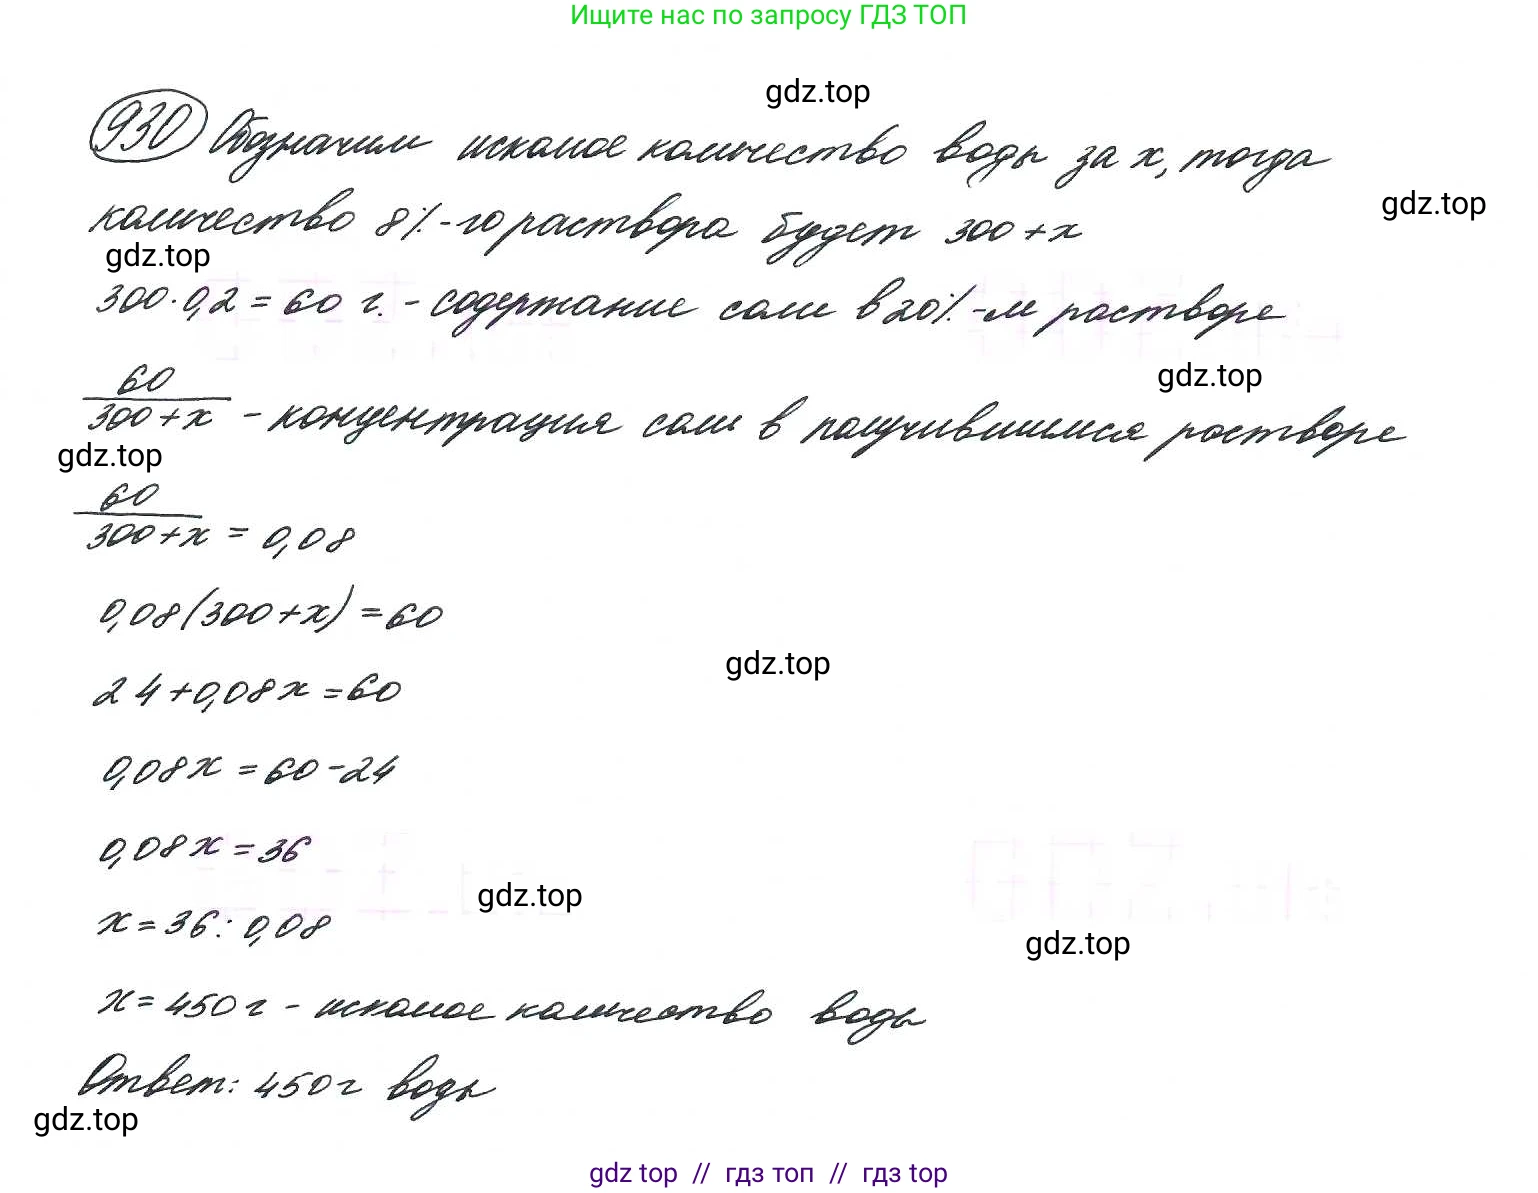 Ищите нас по запросу ГДЗ ТОП
gdz.top
930 Обозначим искомое количество воды за x, тогда
gdz.top
количество 8%-го раствора будет 300+x
gdz.top
300·0,2=60 г. - содержание соли в 20%-м растворе
gdz.top
60
300+x - концентрация соли в получившимся растворе
gdz.top
60
300+x = 0,08
0,08(300+x)=60
gdz.top
24+0,08x=60
0,08x=60-24
0,08x=36
gdz.top
x=36:0,08
gdz.top
x=450г - искомое количество воды
Ответ: 450г воды
gdz.top
gdz top // гдз топ // гдз top